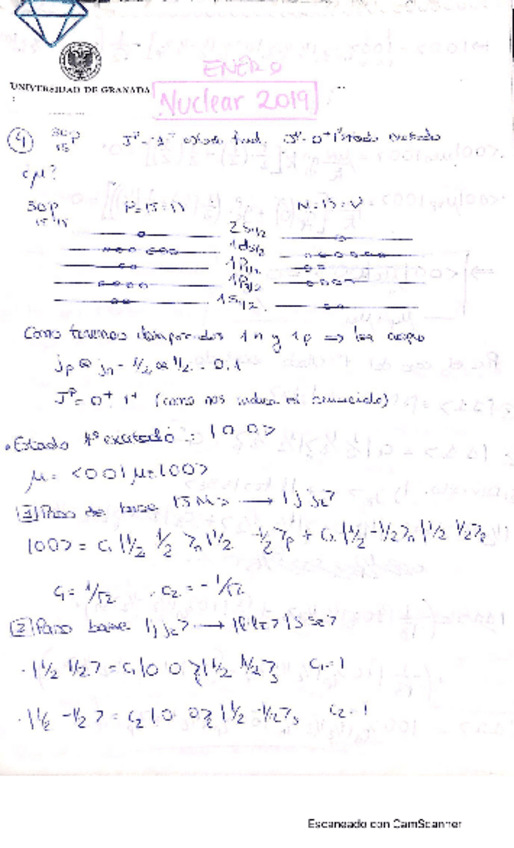 ENERO
UNIVERSIDAD DE GRANADA
Nuclear 2019
④ 30 15 P Jᴾ = 1⁺ estado fund, Jᴾ 0⁺ 1º estado excitado
¿μ?
30 P 15 15
2S1/2
1d5/2
1P1/2
1P3/2
1S1/2
Como tenemos desapareados 1 n y 1 p ⇒ los acoplo
jp ⊗ jn = 1/2 ⊗ 1/2 = 0, 1
Jᴾ = 0⁺ 1⁺ (como nos indica el enunciado)
• Estado 1º excitado = |0 0>
μ = <00|μz|00>
[1] Paso de base |J M> → |j jz>
|00> = C1 |1/2 1/2>n |1/2 -1/2>p + C2 |1/2 -1/2>n |1/2 1/2>p
C1 = 1/√2 . C2 = -1/√2
[2] Paso base |j jz> → |l lz> |s sz>
· |1/2 1/2> = C1 |0 0>l |1/2 1/2>s C1 = 1
· |1/2 -1/2> = C2 |0 0>l |1/2 -1/2>s C2 = 1
Escaneado con CamScanner